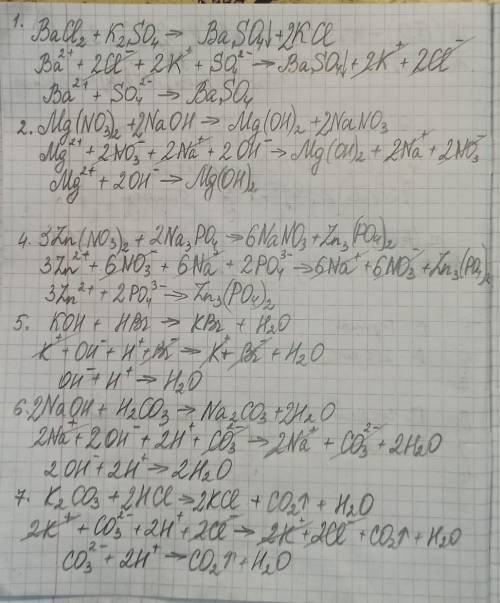 1.
BaCl₂ + K₂SO₄ → BaSO₄↓ + 2KCl
Ba²⁺ + 2Cl⁻ + 2K⁺ + SO₄²⁻ → BaSO₄↓ + 2K⁺ + 2Cl⁻
Ba²⁺ + SO₄²⁻ → BaSO₄
2. Mg(NO₃)₂ + 2NaOH → Mg(OH)₂ + 2NaNO₃
Mg²⁺ + 2NO₃⁻ + 2Na⁺ + 2OH⁻ → Mg(OH)₂ + 2Na⁺ + 2NO₃⁻
Mg²⁺ + 2OH⁻ → Mg(OH)₂
4. 3Zn(NO₃)₂ + 2Na₃PO₄ → 6NaNO₃ + Zn₃(PO₄)₂
3Zn²⁺ + 6NO₃⁻ + 6Na⁺ + 2PO₄³⁻ → 6Na⁺ + 6NO₃⁻ + Zn₃(PO₄)₂
3Zn²⁺ + 2PO₄³⁻ → Zn₃(PO₄)₂
5. KOH + HBr → KBr + H₂O
K⁺ + OH⁻ + H⁺ + Br⁻ → K⁺ + Br⁻ + H₂O
OH⁻ + H⁺ → H₂O
6. 2NaOH + H₂CO₃ → Na₂CO₃ + 2H₂O
2Na⁺ + 2OH⁻ + 2H⁺ + CO₃²⁻ → 2Na⁺ + CO₃²⁻ + 2H₂O
2OH⁻ + 2H⁺ → 2H₂O
7. K₂CO₃ + 2HCl → 2KCl + CO₂↑ + H₂O
2K⁺ + CO₃²⁻ + 2H⁺ + 2Cl⁻ → 2K⁺ + 2Cl⁻ + CO₂↑ + H₂O
CO₃²⁻ + 2H⁺ → CO₂↑ + H₂O